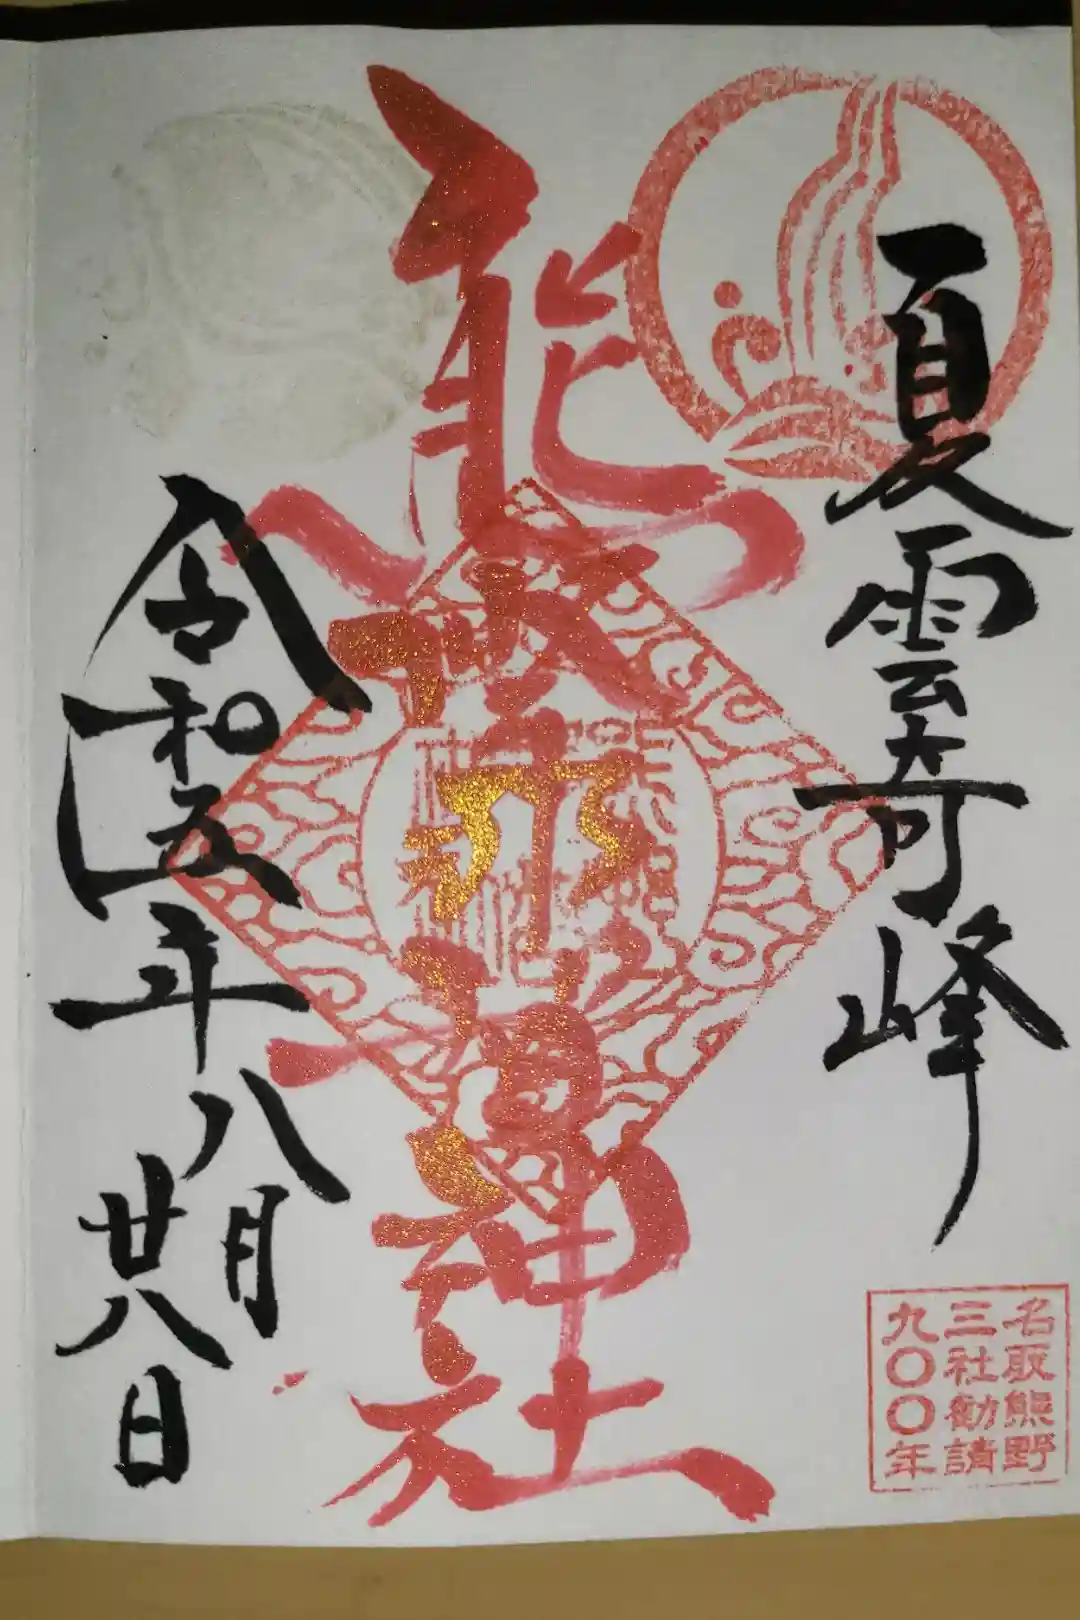 夏雲奇峰
熊野那智神社
令和五年八月廿八日
名取熊野
三社勧請
九〇〇年